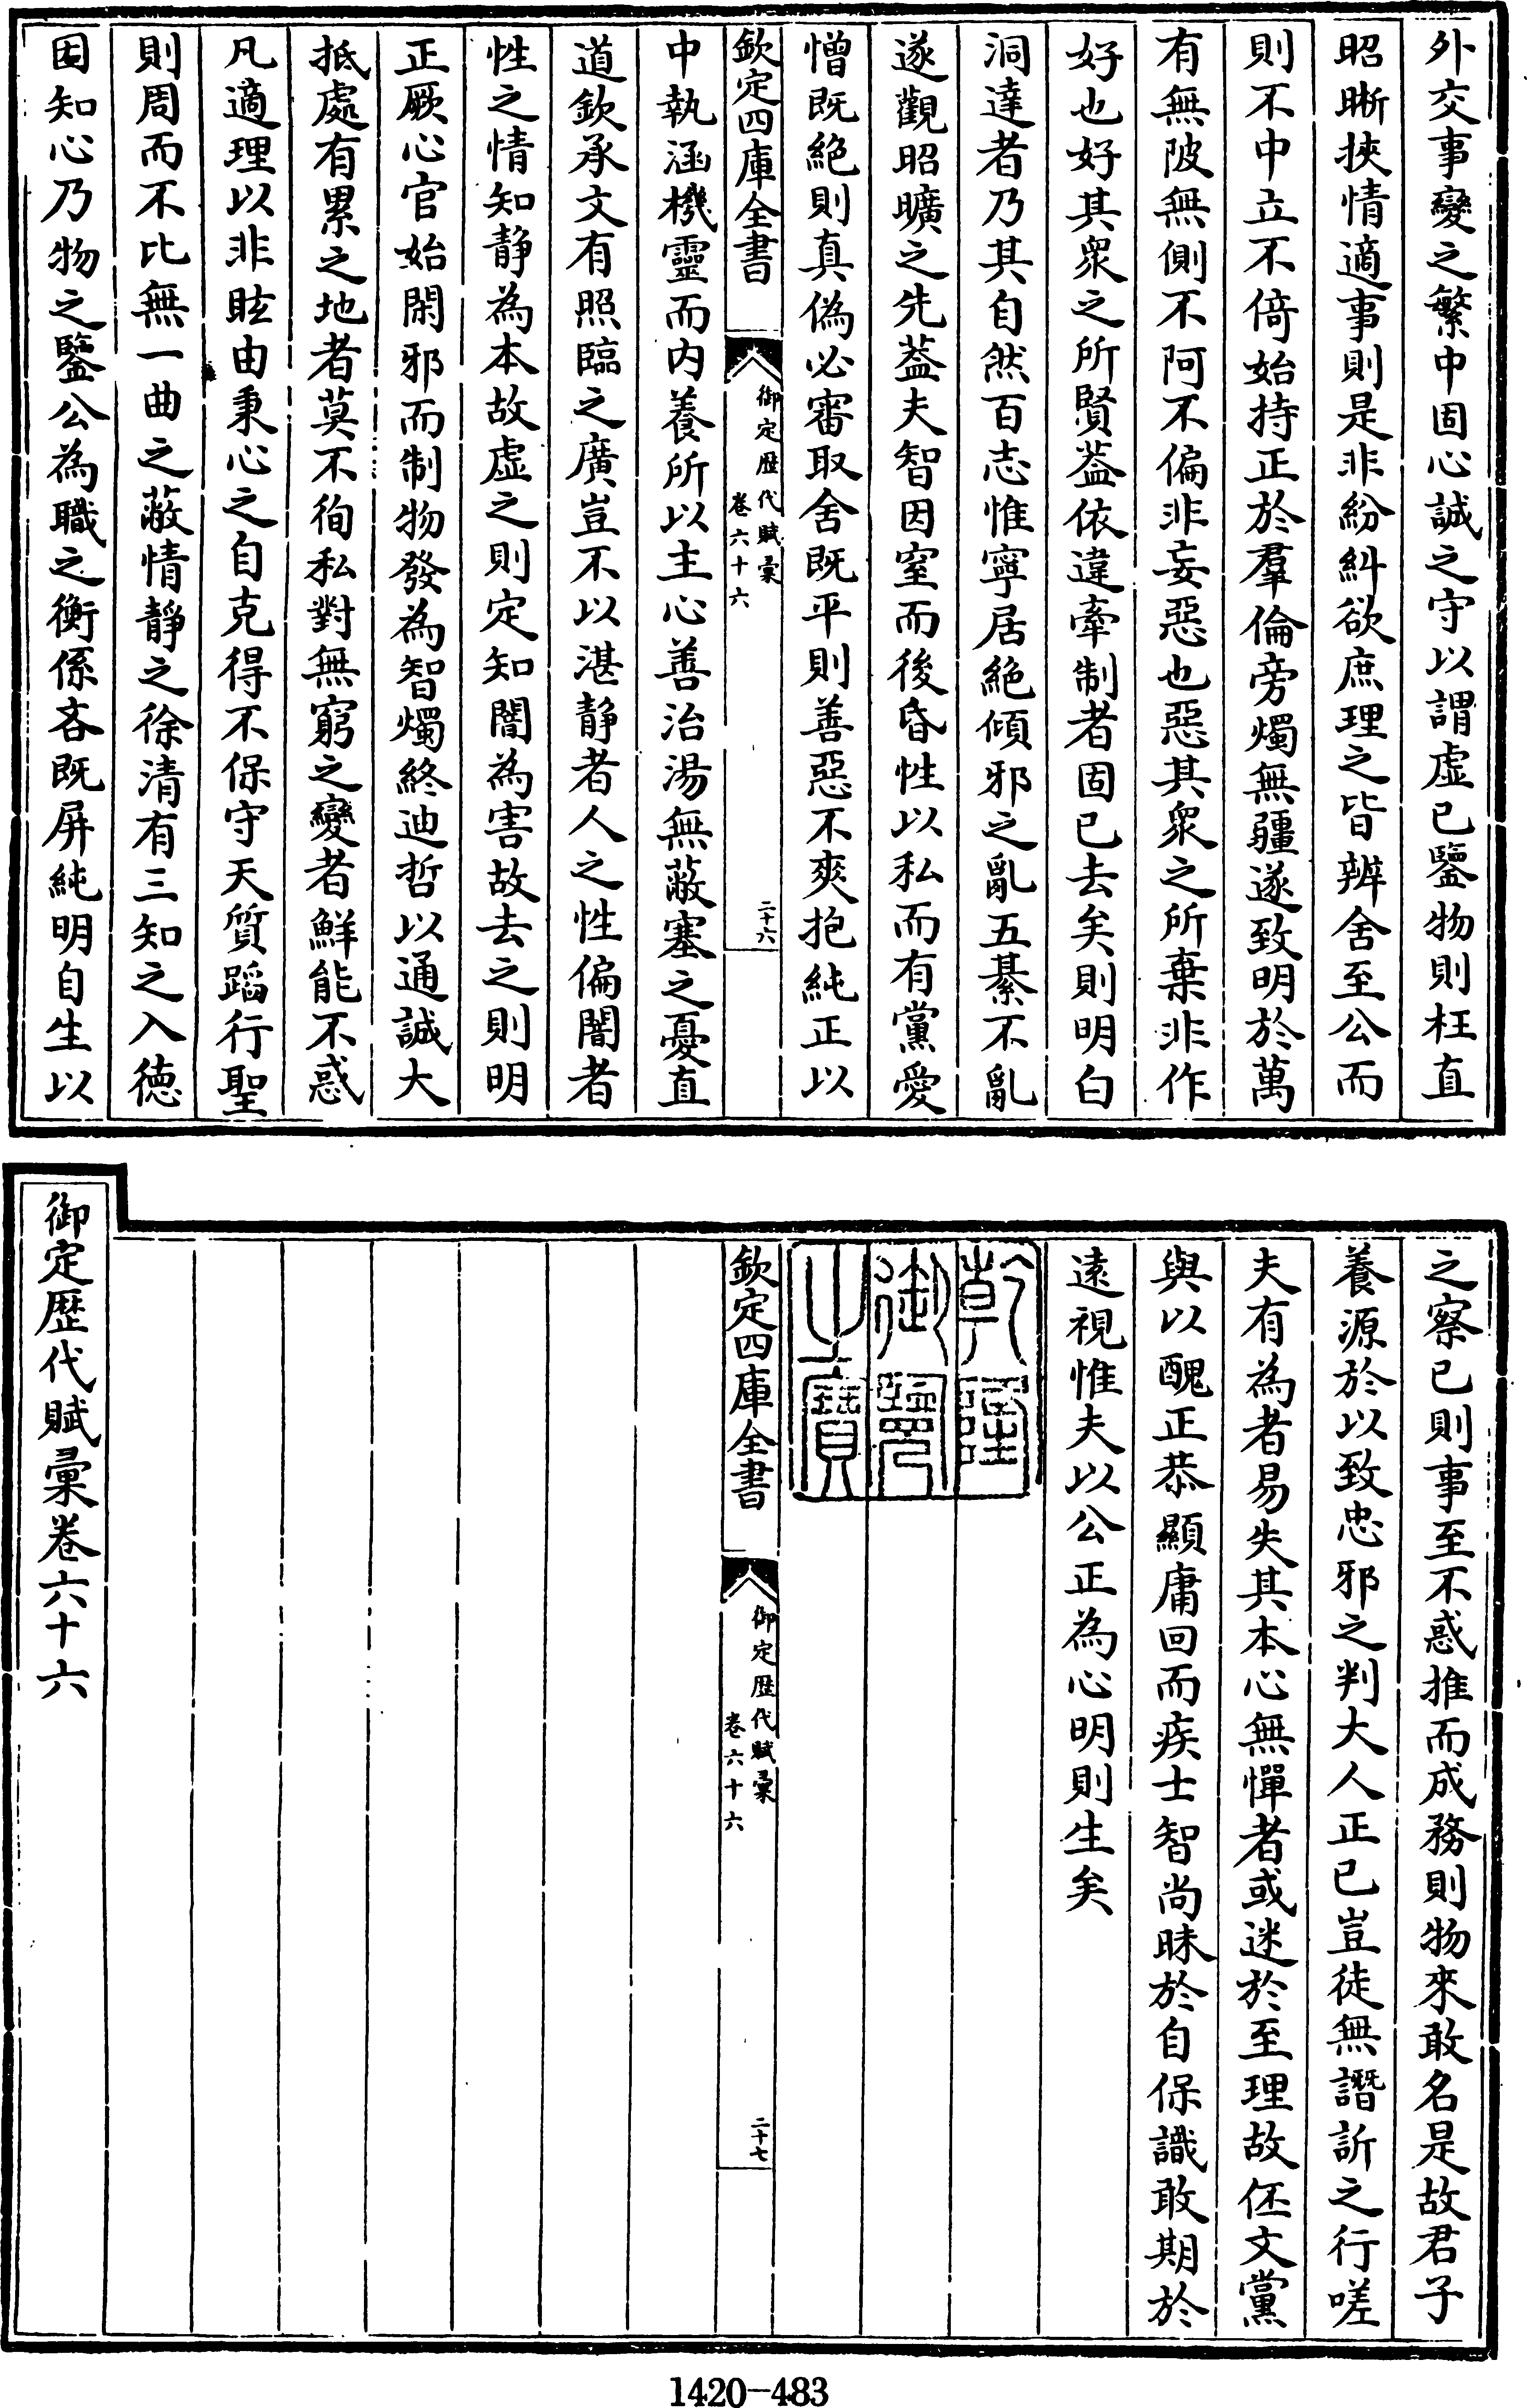 外交事變之繁中固心誠之守以謂虛已鑒物則枉直
昭晰挾情適事則是非紛糾欲庶理之皆辨舍至公而
則不中立不倚始持正於羣倫旁燭無疆遂致明於萬
有無陂無側不阿不偏非妄惡也惡其衆之所棄非作
好也好其衆之所賢葢依違牽制者固已去矣則明白
洞達者乃其自然百志惟寧居絶傾邪之亂五綦不亂
遂觀昭曠之先葢夫智因窒而後昏性以私而有黨愛
憎既絶則真偽必審取舍既平則善惡不爽抱純正以
欽定四庫全書
御定歴代賦彙
卷六十六
二十六
中執涵機靈而内養所以主心善治湯無蔽塞之憂直
道欽承文有照臨之廣豈不以湛静者人之性偏闇者
性之情知静為本故虛之則定知闇為害故去之則明
正厥心官始閑邪而制物發為智燭終迪哲以通誠大
抵處有累之地者莫不徇私對無窮之變者鮮能不惑
凡適理以非眩由秉心之自克得不保守天質蹈行聖
則周而不比無一曲之蔽情靜之徐清有三知之入徳
固知心乃物之鑒公為職之衡係吝既屏純明自生以
之察已則事至不惑推而成務則物來敢名是故君子
養源於以致忠邪之判大人正已豈徒無譖訢之行嗟
夫有為者易失其本心無憚者或迷於至理故伾文黨
與以醜正恭顯庸回而疾士智尚昧於自保識敢期於
遠視惟夫以公正為心明則生矣
乾隆
御覽
之寶
欽定四庫全書
御定歴代賦彙
卷六十六
二十七
御定歴代賦彙卷六十六
1420-483